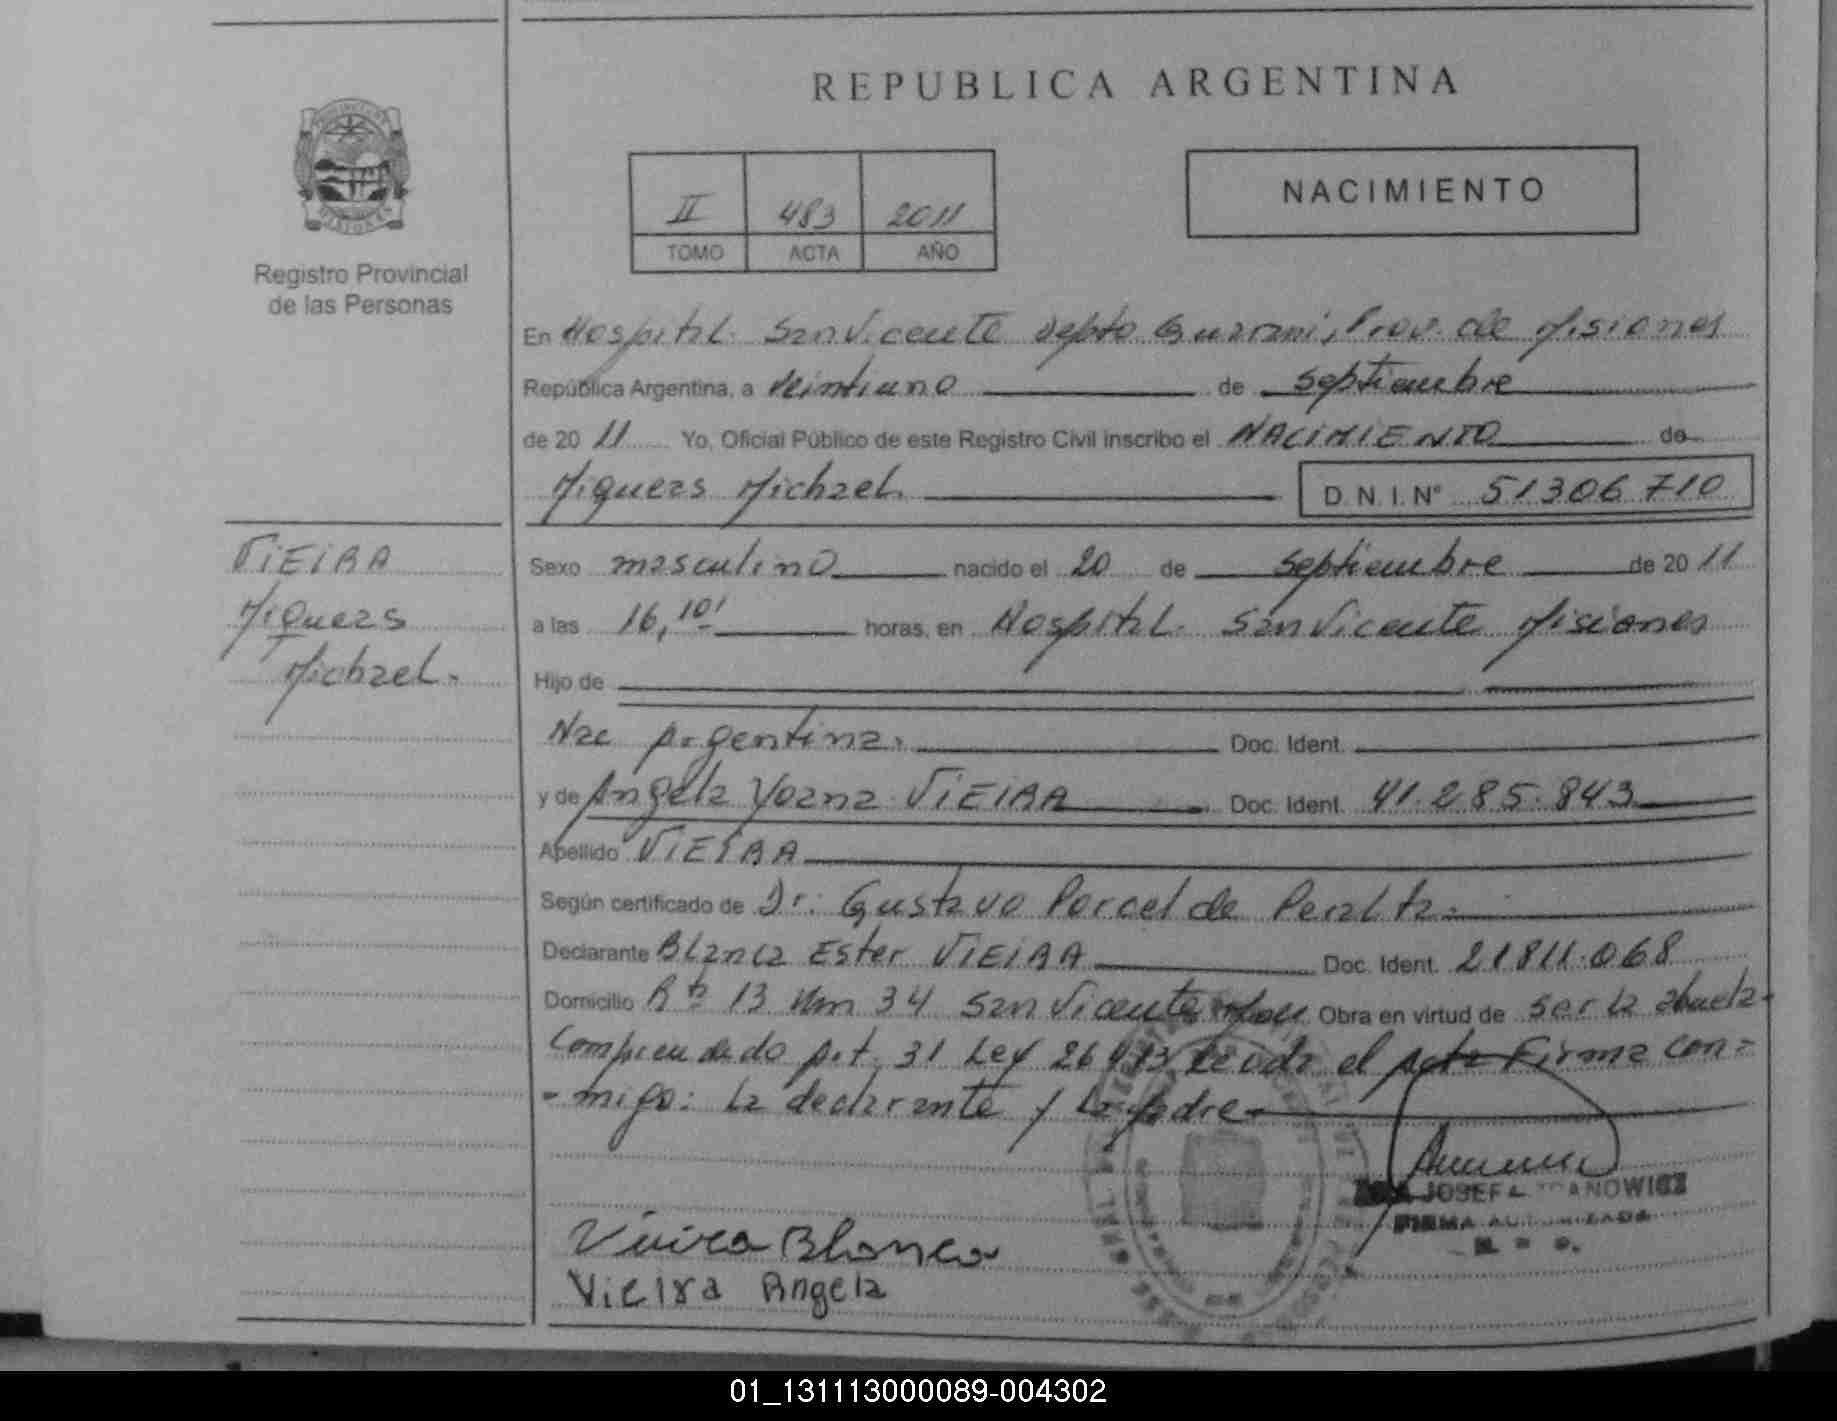 REPUBLICA ARGENTINA
II 483 2011
TOMO ACTA AÑO
NACIMIENTO
Registro Provincial
de las Personas
En Hospital San Vicente Depto Guarani, Prov. de Misiones
República Argentina, a Veintiuno de Septiembre
de 20 11 Yo, Oficial Público de este Registro Civil inscribo el NACIMIENTO de
Miqueas Michael D. N. I. N° 51306710
VIEIRA
Miqueas
Michael.
Sexo masculino nacido el 20 de Septiembre de 20 11
a las 16,10' horas, en Hospital San Vicente Misiones
Hijo de
Nac Argentina. Doc. Ident.
y de Angela Yoana VIEIRA Doc. Ident. 41.285.843
Apellido VIEIRA
Según certificado de Dr: Gustavo Porcel de Peralta.
Declarante Blanca Ester VIEIRA Doc. Ident. 21811.068
Domicilio Rta 13 Km 34 San Vicente Obra en virtud de ser la abuela-
Comprendido Art. 31 Ley 26413 Leida el Acta Firma con=
-migo: la declarante y la Madre-
JOSEFA
FIRMA AUTORIZADA
Vieira Blanca
Vieira Angela
01_131113000089-004302